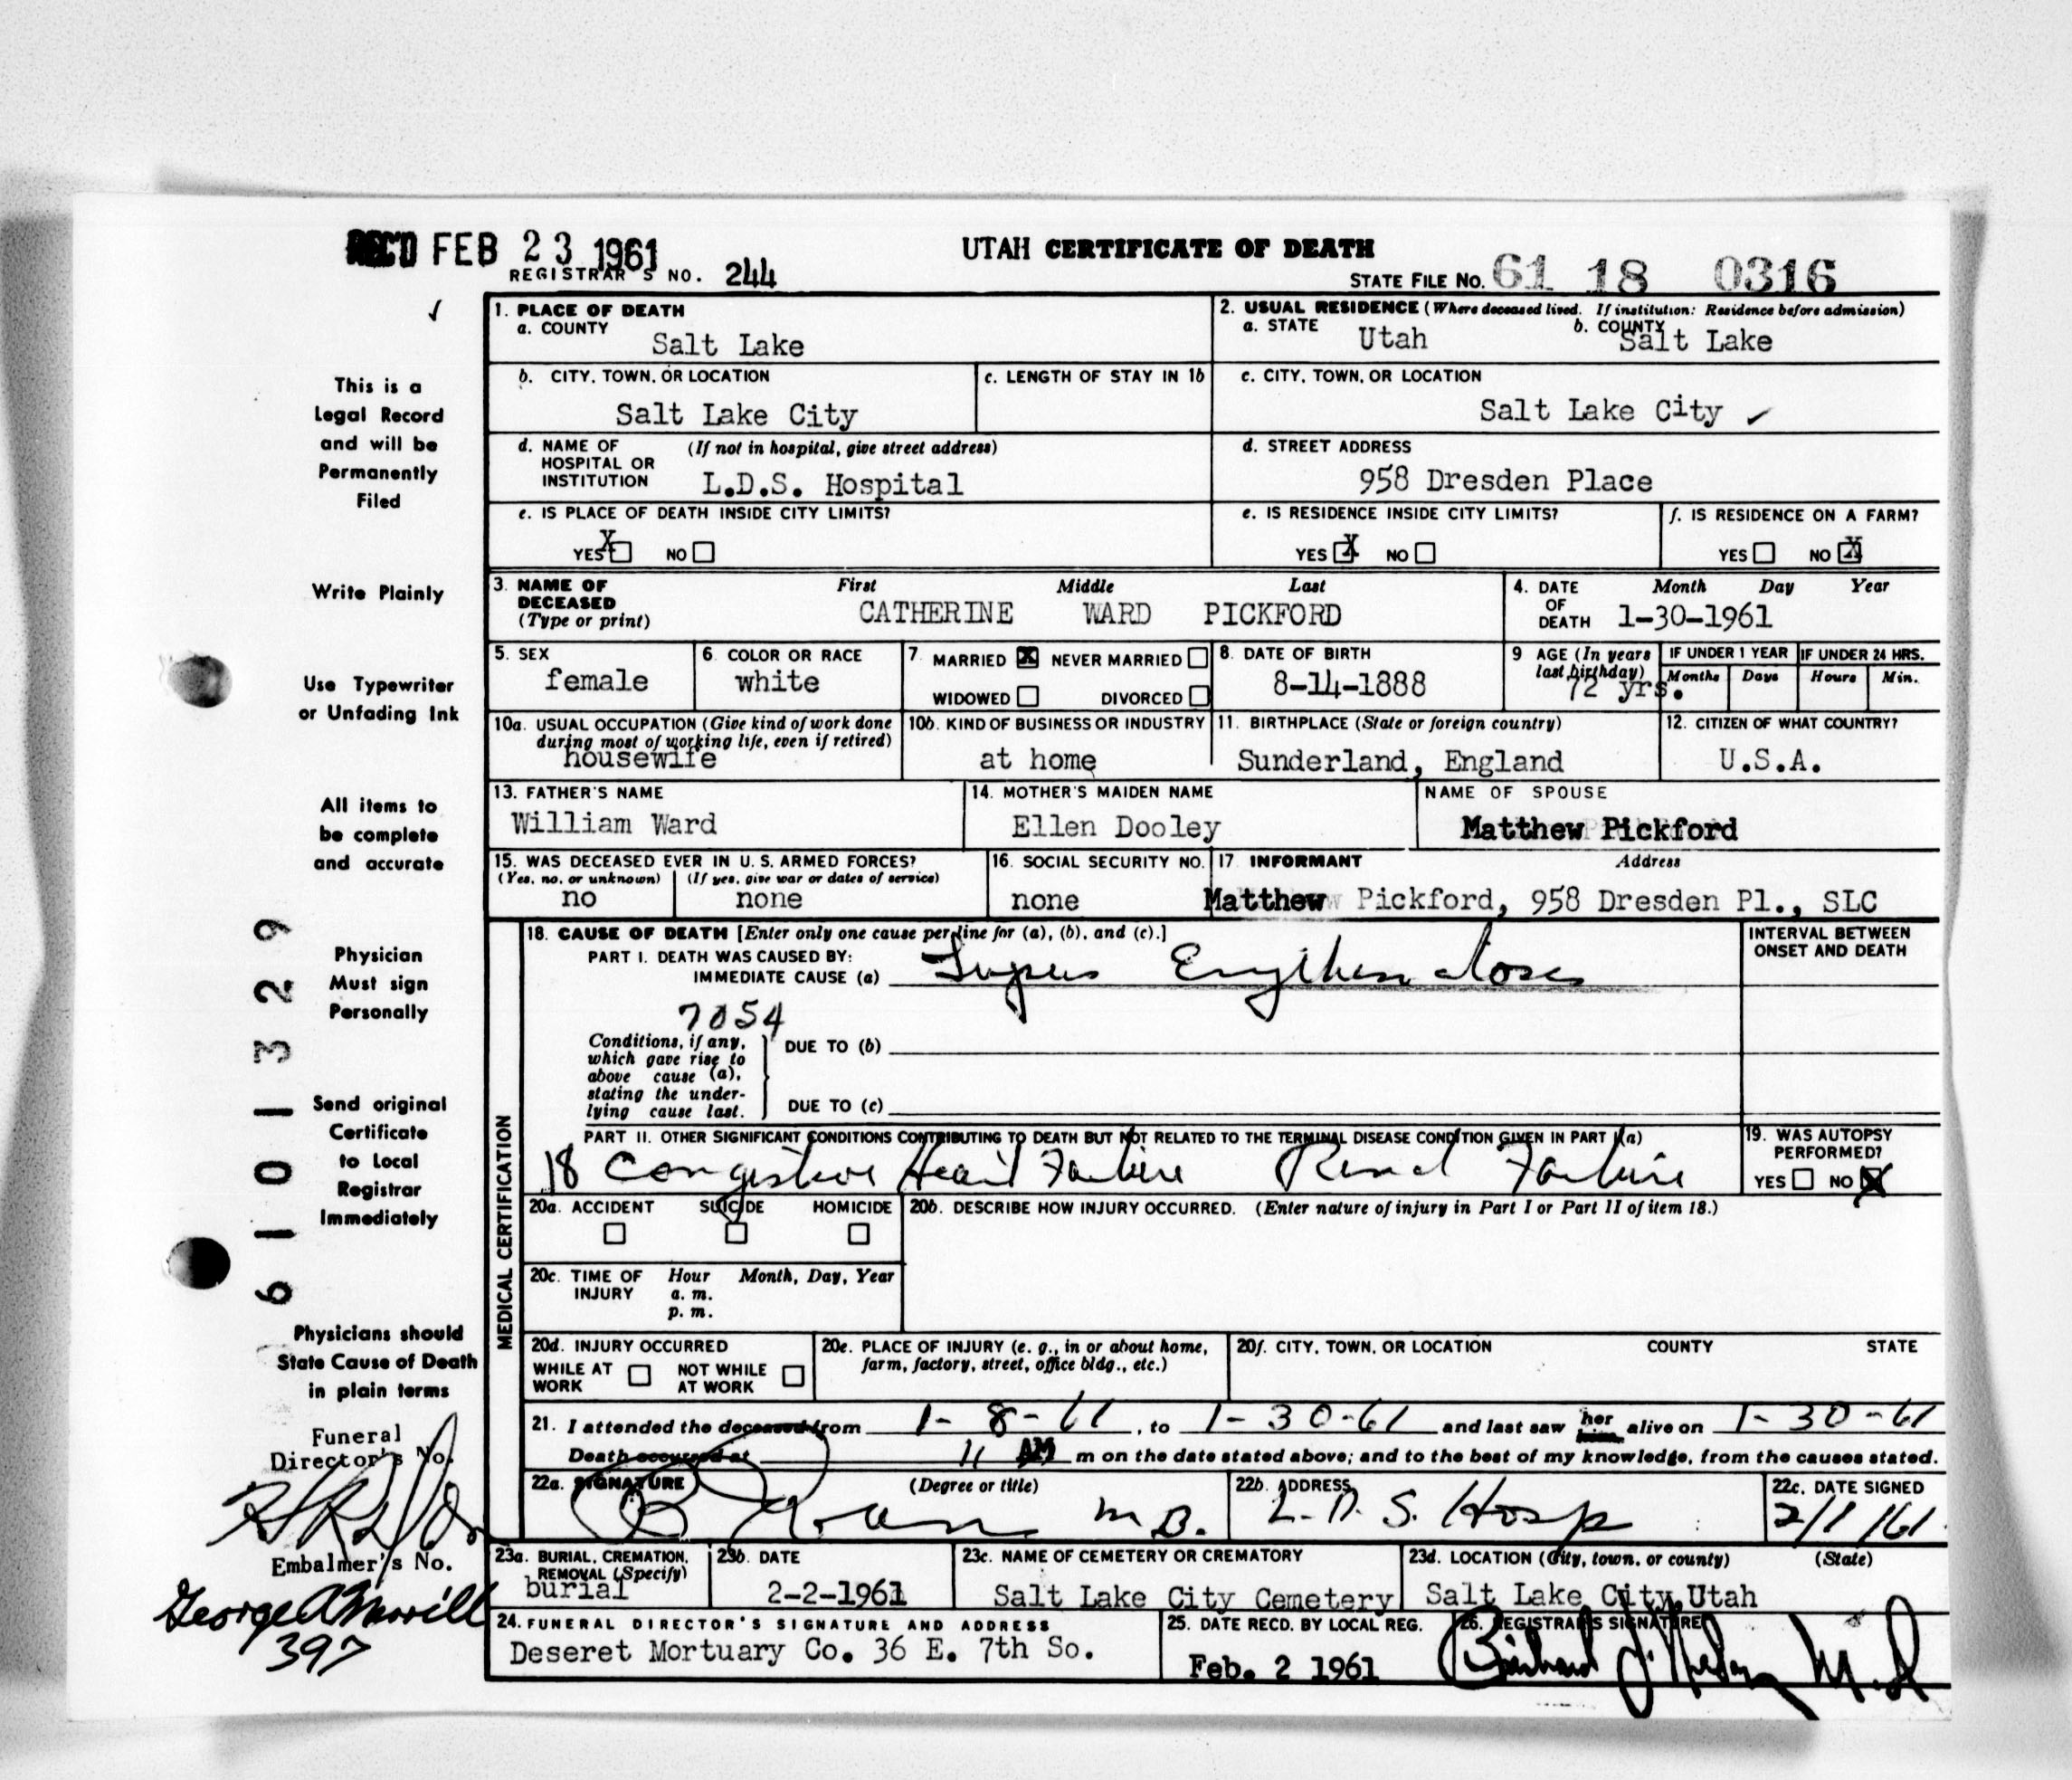 REC'D FEB 23 1961
UTAH CERTIFICATE OF DEATH
REGISTRAR'S NO. 244
STATE FILE NO. 61 18 0316
This is a
Legal Record
and will be
Permanently
Filed
Write Plainly
Use Typewriter
or Unfading Ink
All items to
be complete
and accurate
Physician
Must sign
Personally
Send original
Certificate
to Local
Registrar
Immediately
Physicians should
State Cause of Death
in plain terms
Funeral
Director's No.
Embalmer's No.
George A Morrill
397
6101329
1. PLACE OF DEATH
a. COUNTY
Salt Lake
2. USUAL RESIDENCE (Where deceased lived. If institution: Residence before admission)
a. STATE Utah b. COUNTY Salt Lake
b. CITY, TOWN, OR LOCATION
Salt Lake City
c. LENGTH OF STAY IN 1b
c. CITY, TOWN, OR LOCATION
Salt Lake City
d. NAME OF (If not in hospital, give street address)
HOSPITAL OR
INSTITUTION L.D.S. Hospital
d. STREET ADDRESS
958 Dresden Place
e. IS PLACE OF DEATH INSIDE CITY LIMITS?
YES X NO
e. IS RESIDENCE INSIDE CITY LIMITS?
YES X NO
f. IS RESIDENCE ON A FARM?
YES NO X
3. NAME OF
DECEASED
(Type or print)
First Middle Last
CATHERINE WARD PICKFORD
4. DATE
OF
DEATH
Month Day Year
1-30-1961
5. SEX
female
6. COLOR OR RACE
white
7. MARRIED X NEVER MARRIED
WIDOWED DIVORCED
8. DATE OF BIRTH
8-14-1888
9 AGE (In years
last birthday)
72 yrs.
IF UNDER 1 YEAR
Months Days
IF UNDER 24 HRS.
Hours Min.
10a. USUAL OCCUPATION (Give kind of work done
during most of working life, even if retired)
housewife
10b. KIND OF BUSINESS OR INDUSTRY
at home
11. BIRTHPLACE (State or foreign country)
Sunderland, England
12. CITIZEN OF WHAT COUNTRY?
U.S.A.
13. FATHER'S NAME
William Ward
14. MOTHER'S MAIDEN NAME
Ellen Dooley
NAME OF SPOUSE
Matthew Pickford
15. WAS DECEASED EVER IN U.S. ARMED FORCES?
(Yes, no, or unknown) (If yes, give war or dates of service)
no none
16. SOCIAL SECURITY NO.
none
17 INFORMANT Address
Matthew Pickford, 958 Dresden Pl., SLC
MEDICAL CERTIFICATION
18. CAUSE OF DEATH [Enter only one cause per line for (a), (b), and (c).]
PART I. DEATH WAS CAUSED BY:
IMMEDIATE CAUSE (a) Lupus Erythematosus
INTERVAL BETWEEN
ONSET AND DEATH
7054
Conditions, if any,
which gave rise to
above cause (a),
stating the under-
lying cause last.
DUE TO (b)
DUE TO (c)
PART II. OTHER SIGNIFICANT CONDITIONS CONTRIBUTING TO DEATH BUT NOT RELATED TO THE TERMINAL DISEASE CONDITION GIVEN IN PART I(a)
18 Congestive Heart Failure Renal Failure
19. WAS AUTOPSY
PERFORMED?
YES NO X
20a. ACCIDENT SUICIDE HOMICIDE
20b. DESCRIBE HOW INJURY OCCURRED. (Enter nature of injury in Part I or Part II of item 18.)
20c. TIME OF
INJURY
Hour Month, Day, Year
a. m.
p. m.
20d. INJURY OCCURRED
WHILE AT
WORK
NOT WHILE
AT WORK
20e. PLACE OF INJURY (e. g., in or about home,
farm, factory, street, office bldg., etc.)
20f. CITY, TOWN, OR LOCATION COUNTY STATE
21. I attended the deceased from 1-8-61, to 1-30-61 and last saw her him alive on 1-30-61
Death occurred at 11 AM m on the date stated above; and to the best of my knowledge, from the causes stated.
22a. SIGNATURE (Degree or title)
M.D.
22b. ADDRESS
L.D.S. Hosp
22c. DATE SIGNED
2/1/61
23a. BURIAL, CREMATION,
REMOVAL (Specify)
burial
23b. DATE
2-2-1961
23c. NAME OF CEMETERY OR CREMATORY
Salt Lake City Cemetery
23d. LOCATION (City, town, or county) (State)
Salt Lake City, Utah
24. FUNERAL DIRECTOR'S SIGNATURE AND ADDRESS
Deseret Mortuary Co. 36 E. 7th So.
25. DATE RECD. BY LOCAL REG.
Feb. 2 1961
26. REGISTRAR'S SIGNATURE